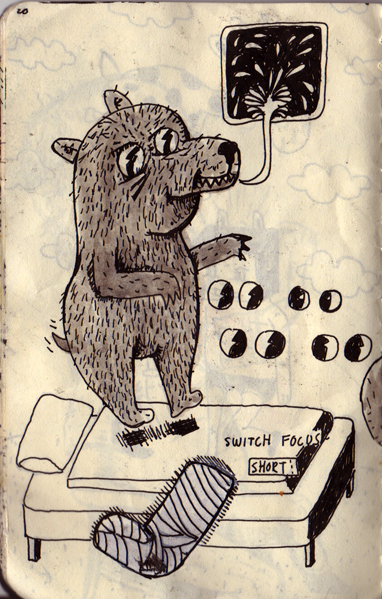 20
SWITCH FOCUS
SHORT: